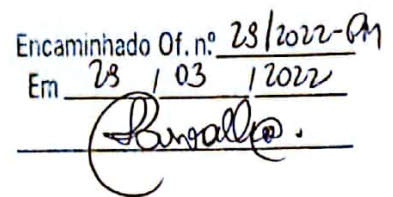 Encaminhado Of. n.º 29/2022-PM
Em 29 / 03 / 2022